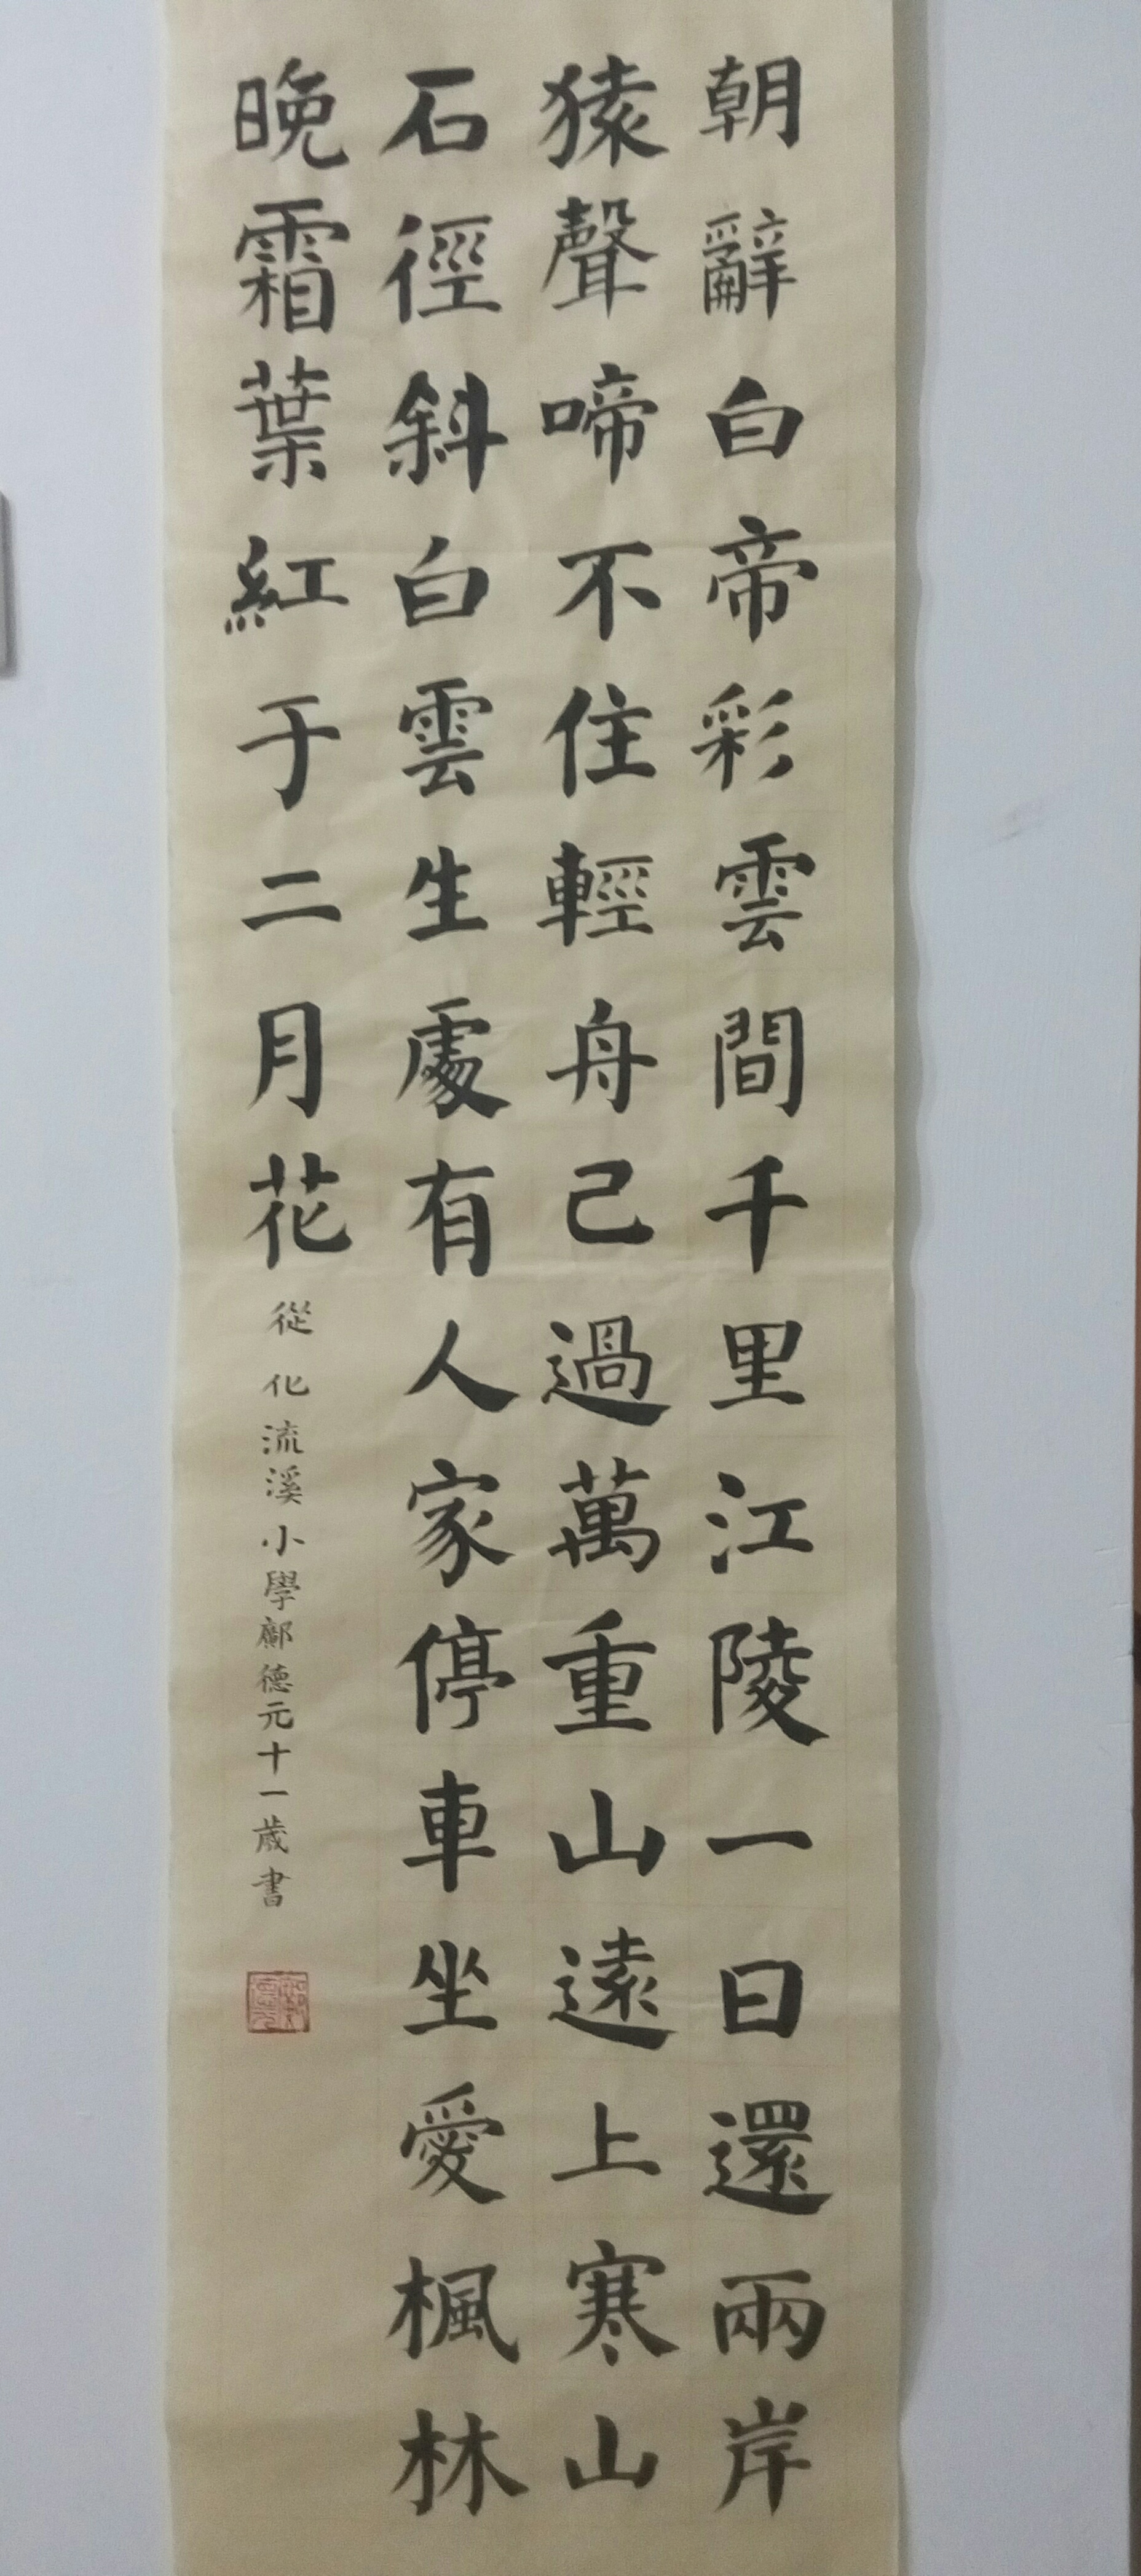 朝辭白帝彩雲間千里江陵一日還兩岸
猿聲啼不住輕舟己過萬重山遠上寒山
石徑斜白雲生處有人家停車坐愛楓林
晚霜葉紅于二月花
從化流溪小學鄺德元十一歲書